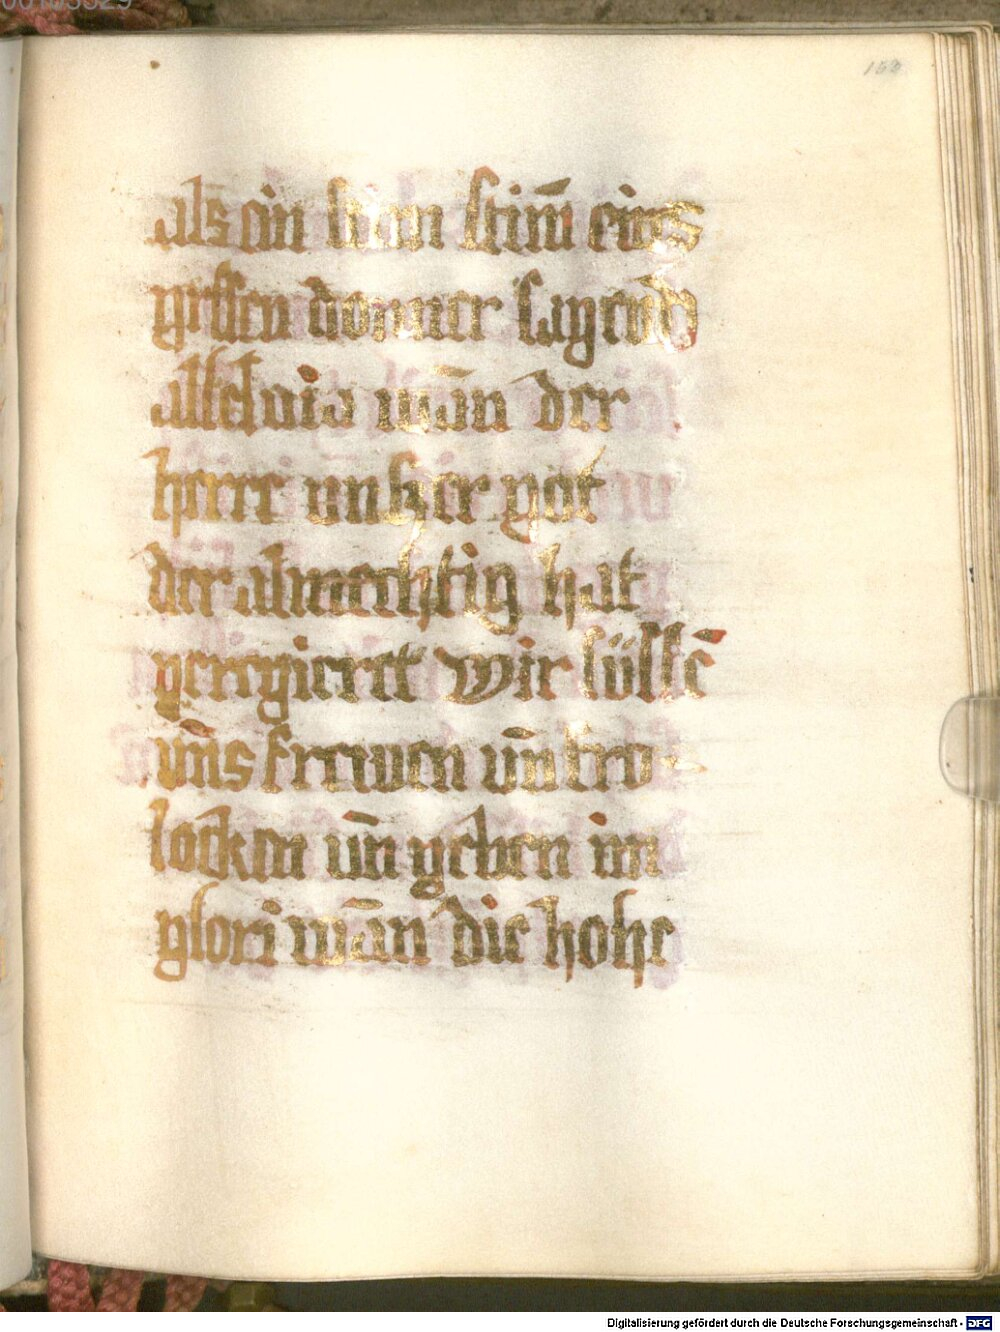 153
als ein stim̄ eins
grossen donner sagend
alleluia wan̄ der
herre unßer got
der almechtig hat
geregierett wir süllē
un̄s frewen un̄ fro
locken un̄ geben im
glori wan̄ die hohe
Digitalisierung gefördert durch die Deutsche Forschungsgemeinschaft - DFG